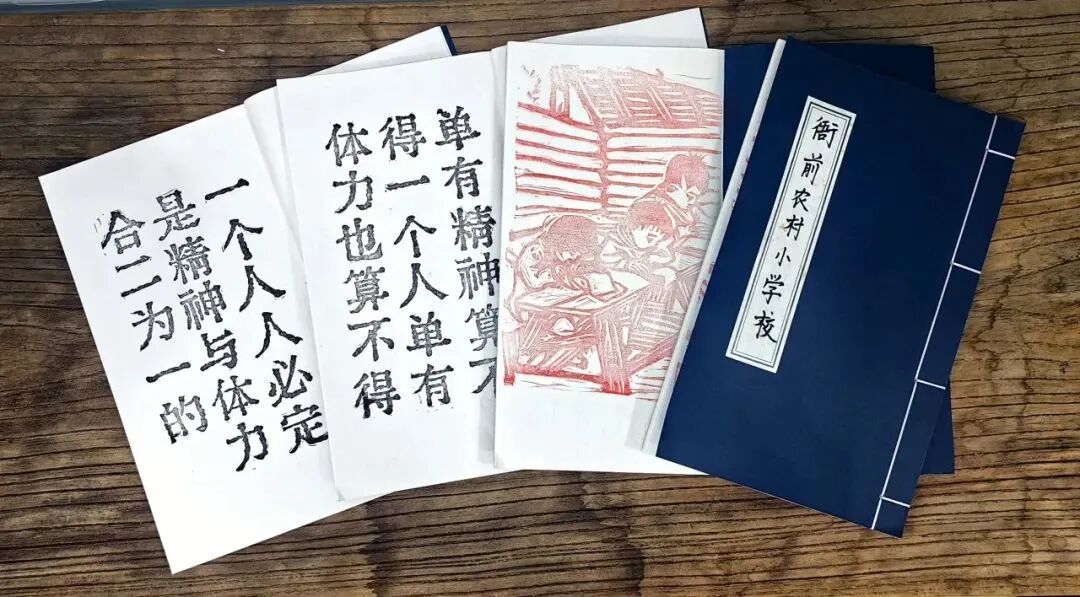 衙前农村小学校
单有精神算不
得一个人单有
体力也算不得
一个人人必定
是精神与体力
合二为一的